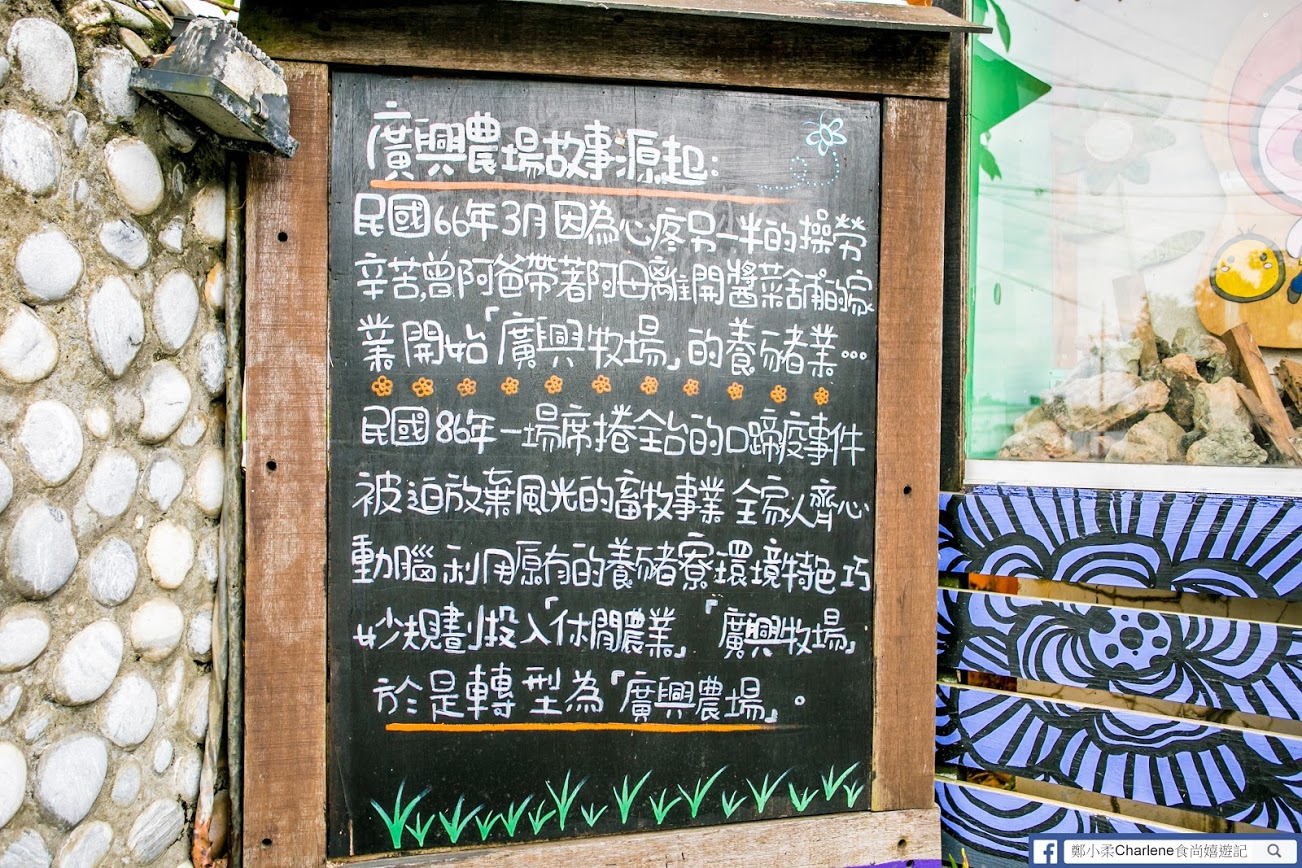 廣興農場故事源起:
民國66年3月因為心疼另一半的操勞
辛苦,曾阿爸帶著阿母離開醬菜舖的家
業開始「廣興牧場」的養豬業…
民國86年一場席捲全台的口蹄疫事件
被迫放棄風光的畜牧事業 全家人齊心
動腦 利用原有的養豬寮環境特色 巧
妙規劃投入「休閒農業」「廣興牧場」
於是轉型為「廣興農場」。
鄭小柔Charlene食尚嬉遊記